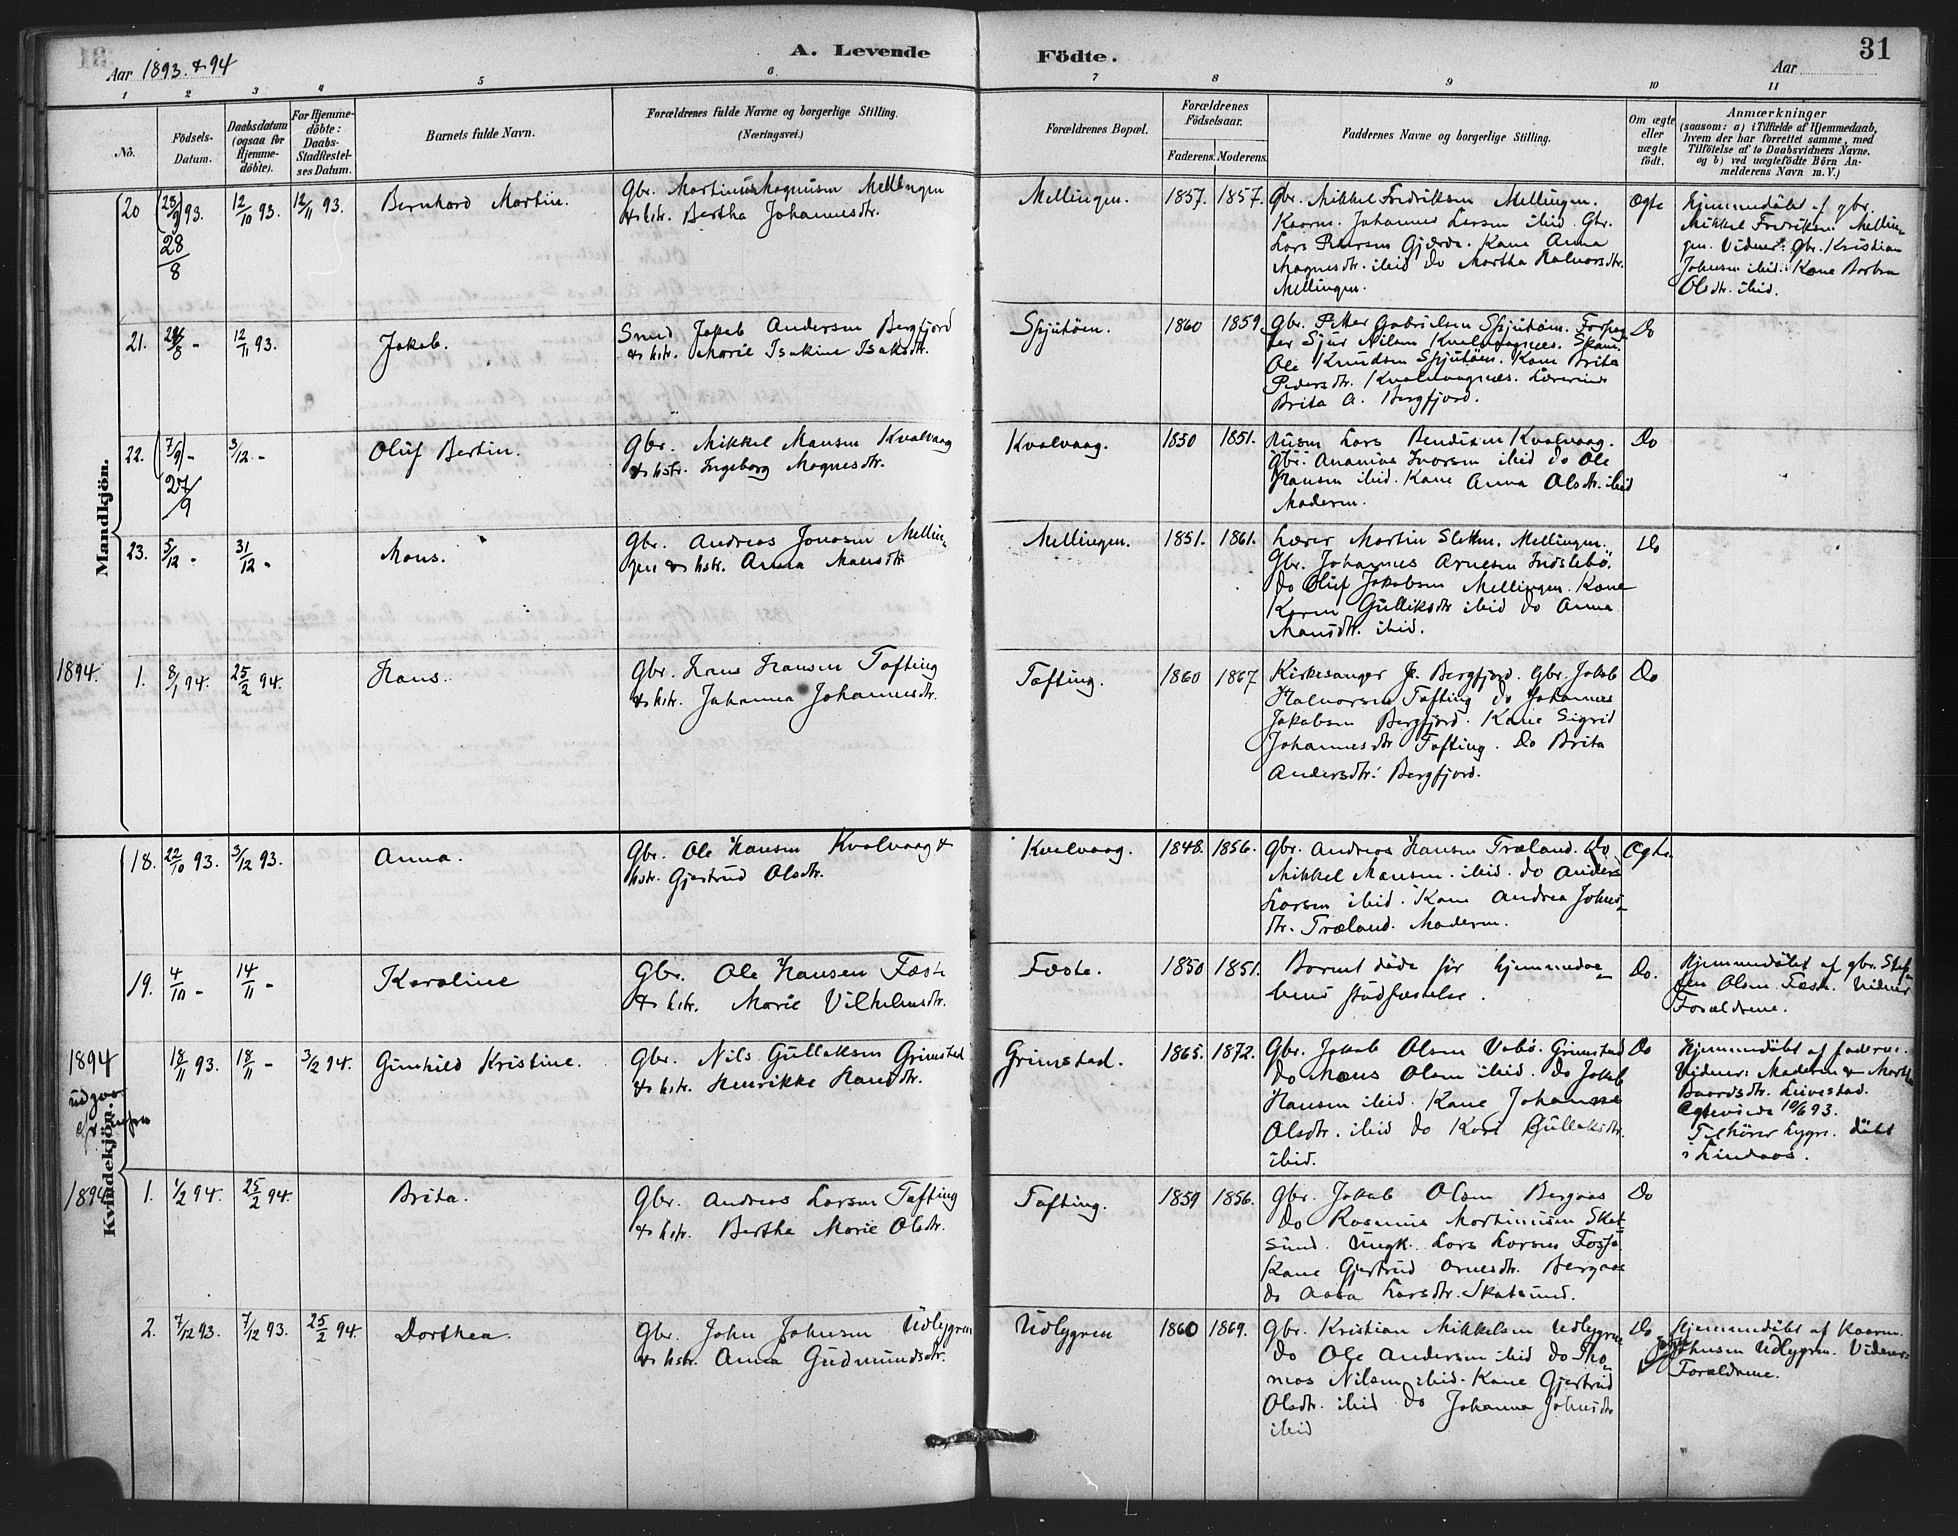 Aar 1893 & 94
A. Levende Födte.
31
Aar
1 2 3 4 5 6 7 8 9 10 11
No.
Födsels-
Datum.
Daabsdatum
(ogsaa for
Hjemme-
döbte).
For Hjemme-
döbte:
Daabs-
Stadfæstel-
ses Datum.
Barnets fulde Navn.
Forældrenes fulde Navne og borgerlige Stilling.
(Næringsvei.)
Forældrenes Bopæl.
Forældrenes
Födselsaar.
Faderens.
Moderens.
Faddernes Navne og borgerlige Stilling.
Om ægte
eller
uægte
födt.
Anmærkninger
(saasom: a) i Tilfælde af Hjemmedaab,
hvem der har forrettet samme, med
Tilföielse af to Daabsvidners Navne,
og b) ved uægtefödte Börn An-
melderens Navn m. V.)
Mandkjön.
20 (28/9) 93. 28/8
12/10 93.
12/11 93.
Bernhard Martin.
Gbr. Martinus Magnusen Mellingen
& hstr. Bertha Johannesdtr.
Mellingen.
1857. 1857.
Gbr. Mikkel Fredriksen Mellingen.
Kaarm. Johannes Larsen ibid. Gbr.
Lars Gjærde. Kone Anna
Magnesdtr. ibid do Martha Halvorsdtr.
Mellingen.
Ægte
Hjemmedöbt af gbr.
Mikkel Fredriksen Mellin-
gen. Vidner: Gbr. Kristian
Johnsen ibid. Kone Barbra
Olsdtr. ibid.
21. -
12/11 93.
Jakob.
Smed Jakob Andersen Bergfjord
& hstr. Marie Isakine Isaksdtr.
Spjutöen.
1860 1859.
Gbr. Petter Gabrielsen Spjutöen.
Sjur Nilsen Kvalvaagnes.
Ole Knudsen Spjutöen. Kone Brita
Pedersdtr. Kvalvaagnes. Lærerinde
Brita A. Bergfjord.
Do
22. (7/9) - 27/9
3/12 -
Oluf Bertin.
Gbr. Mikkel Mansen Kvalvaag
& hstr. Ingeborg Magnesdtr.
Kvalvaag.
1850 1851.
Lars Bendixen Kvalvaag.
Gbr. Ananias Ivarsen ibid do Ole
Hansen ibid. Kone Anna Olsdtr. ibid
Moderen.
Do
23. 5/12 -
31/12 -
Mons.
Gbr. Andreas Jonasen Mellin-
gen & hstr. Anna Mansdtr.
Mellingen.
1851. 1861.
Lærer Martin Sletten. Mellingen.
Gbr. Johannes Arnesen Indstebö.
do Oluf Jakobsen Mellingen. Kone
Karen Gulliksdtr. ibid do Anna
Mansdtr. ibid.
Do
1894.
1. 8/1 94.
25/2 94.
Hans.
Gbr. Hans Hansen Tofting
& hstr. Johanna Johannesdtr.
Tofting.
1860 1867
Kirkesanger J. Bergfjord. Gbr. Jakob
Halvorsen Tofting do Johannes
Jakobsen Bergfjord. Kone Sigrid
Johannesdtr. Tofting. Do Brita
Andersdtr. Bergfjord.
Do
Kvindekjön.
18. 22/10 93.
3/12 93.
Anna.
Gbr. Ole Hansen Kvalvaag &
hstr. Gjertrud Olsdtr.
Kvalvaag.
1848. 1856.
Gbr. Andreas Hansen Træland. Do
Mikkel Mansen. ibid. do Anders
Larsen ibid. Kone Andrea Johnes-
dtr. Træland. Moderen.
Ægte.
19. 4/10 -
14/11 -
Karoline
Gbr. Ole Hansen Fæste
& hstr. Marie Vilhelmsdtr.
Fæste.
1850 1851.
Barnet döde för hjemmedaa-
bens stadfæstelse.
Do.
Hjemmedöbt af gbr. Stef-
fen Olsen Fæste. Vidner
Forældrene.
1894
18/11 93.
18/11 -
3/2 94.
Gunhild Kristine.
Gbr. Nils Gullaksen Grimstad
& hstr. Henrikke Hansdtr.
Grimstad.
1865. 1872.
Gbr. Jakob Olsen Vabö. Grimstad
do Mons Olsen ibid. do Jakob
Hansen ibid. Kone Johanne
Olsdtr. ibid do Kari Gullaksdtr.
ibid.
Do
Hjemmedöbt af faderen.
Vidner: Moderen & Martha
Baardsdtr. Leivestad.
Ægtevide 10/6 93.
Tilhörer Lygre. döbt
i Lindaas.
1894
1. 1/2 94.
25/2 94.
Brita.
Gbr. Andreas Larsen Tofting
& hstr. Bertha Marie Olsdtr.
Tofting.
1859 1856.
Gbr. Jakob Olsen Bergaas
do Rasmus Martinusen Skat-
sund. Ungk. Lars Larsen Fosse
Kone Gjertrud Arnesdtr. Bergaas
do Larsdtr. Skatsund.
Do
2. 7/12 93.
7/12 93.
25/2 94.
Dorthea.
Gbr. John Johnsen Udlygren
& hstr. Anna Gudmundsdtr.
Udlygren
1860 1869.
Gbr. Kristian Mikkelsen Udlygren
do Ole Andersen ibid do Tho-
mas Nilsen ibid. Kone Gjertrud
Olsdtr. ibid do Johanna Johnsdtr.
ibid
Do
Hjemmedöbt af Kaarm.
Johnsen Udlygren. Vidner:
Forældrene.